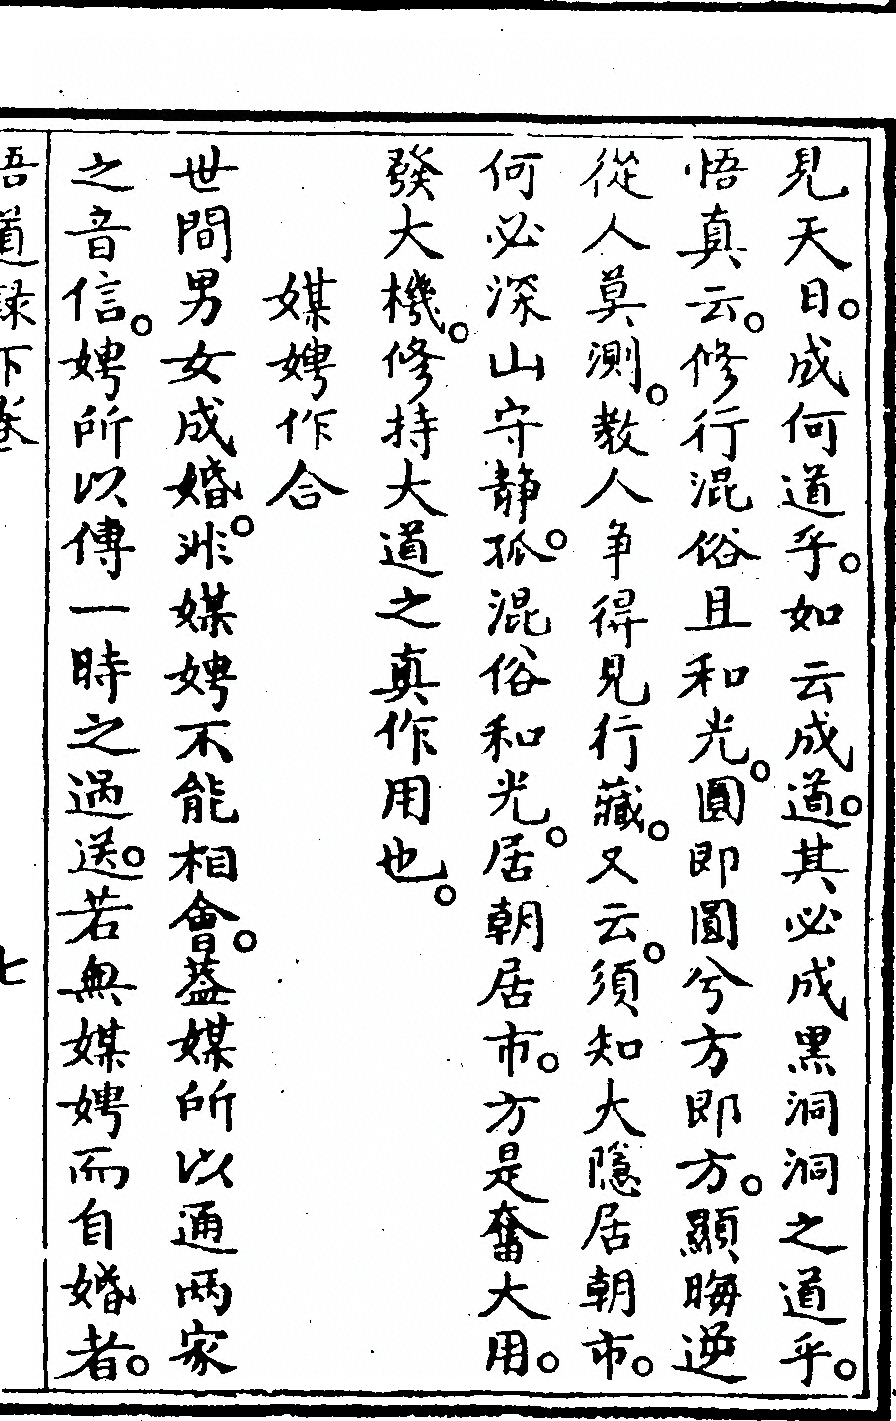 見天日。成何道乎。如云成道。其必成黑洞洞之道乎。
悟真云。修行混俗且和光。圓即圓兮方即方。顯晦逆
從人莫測。教人爭得見行藏。又云。須知大隱居朝市。
何必深山守靜孤。混俗和光。居朝居市。方是奮大用。
發大機。修持大道之真作用也。
媒娉作合
世間男女成婚。非媒娉不能相會。蓋媒所以通兩家
之音信。娉所以傳一時之過送。若無媒娉而自婚者。
悟道錄下卷 七